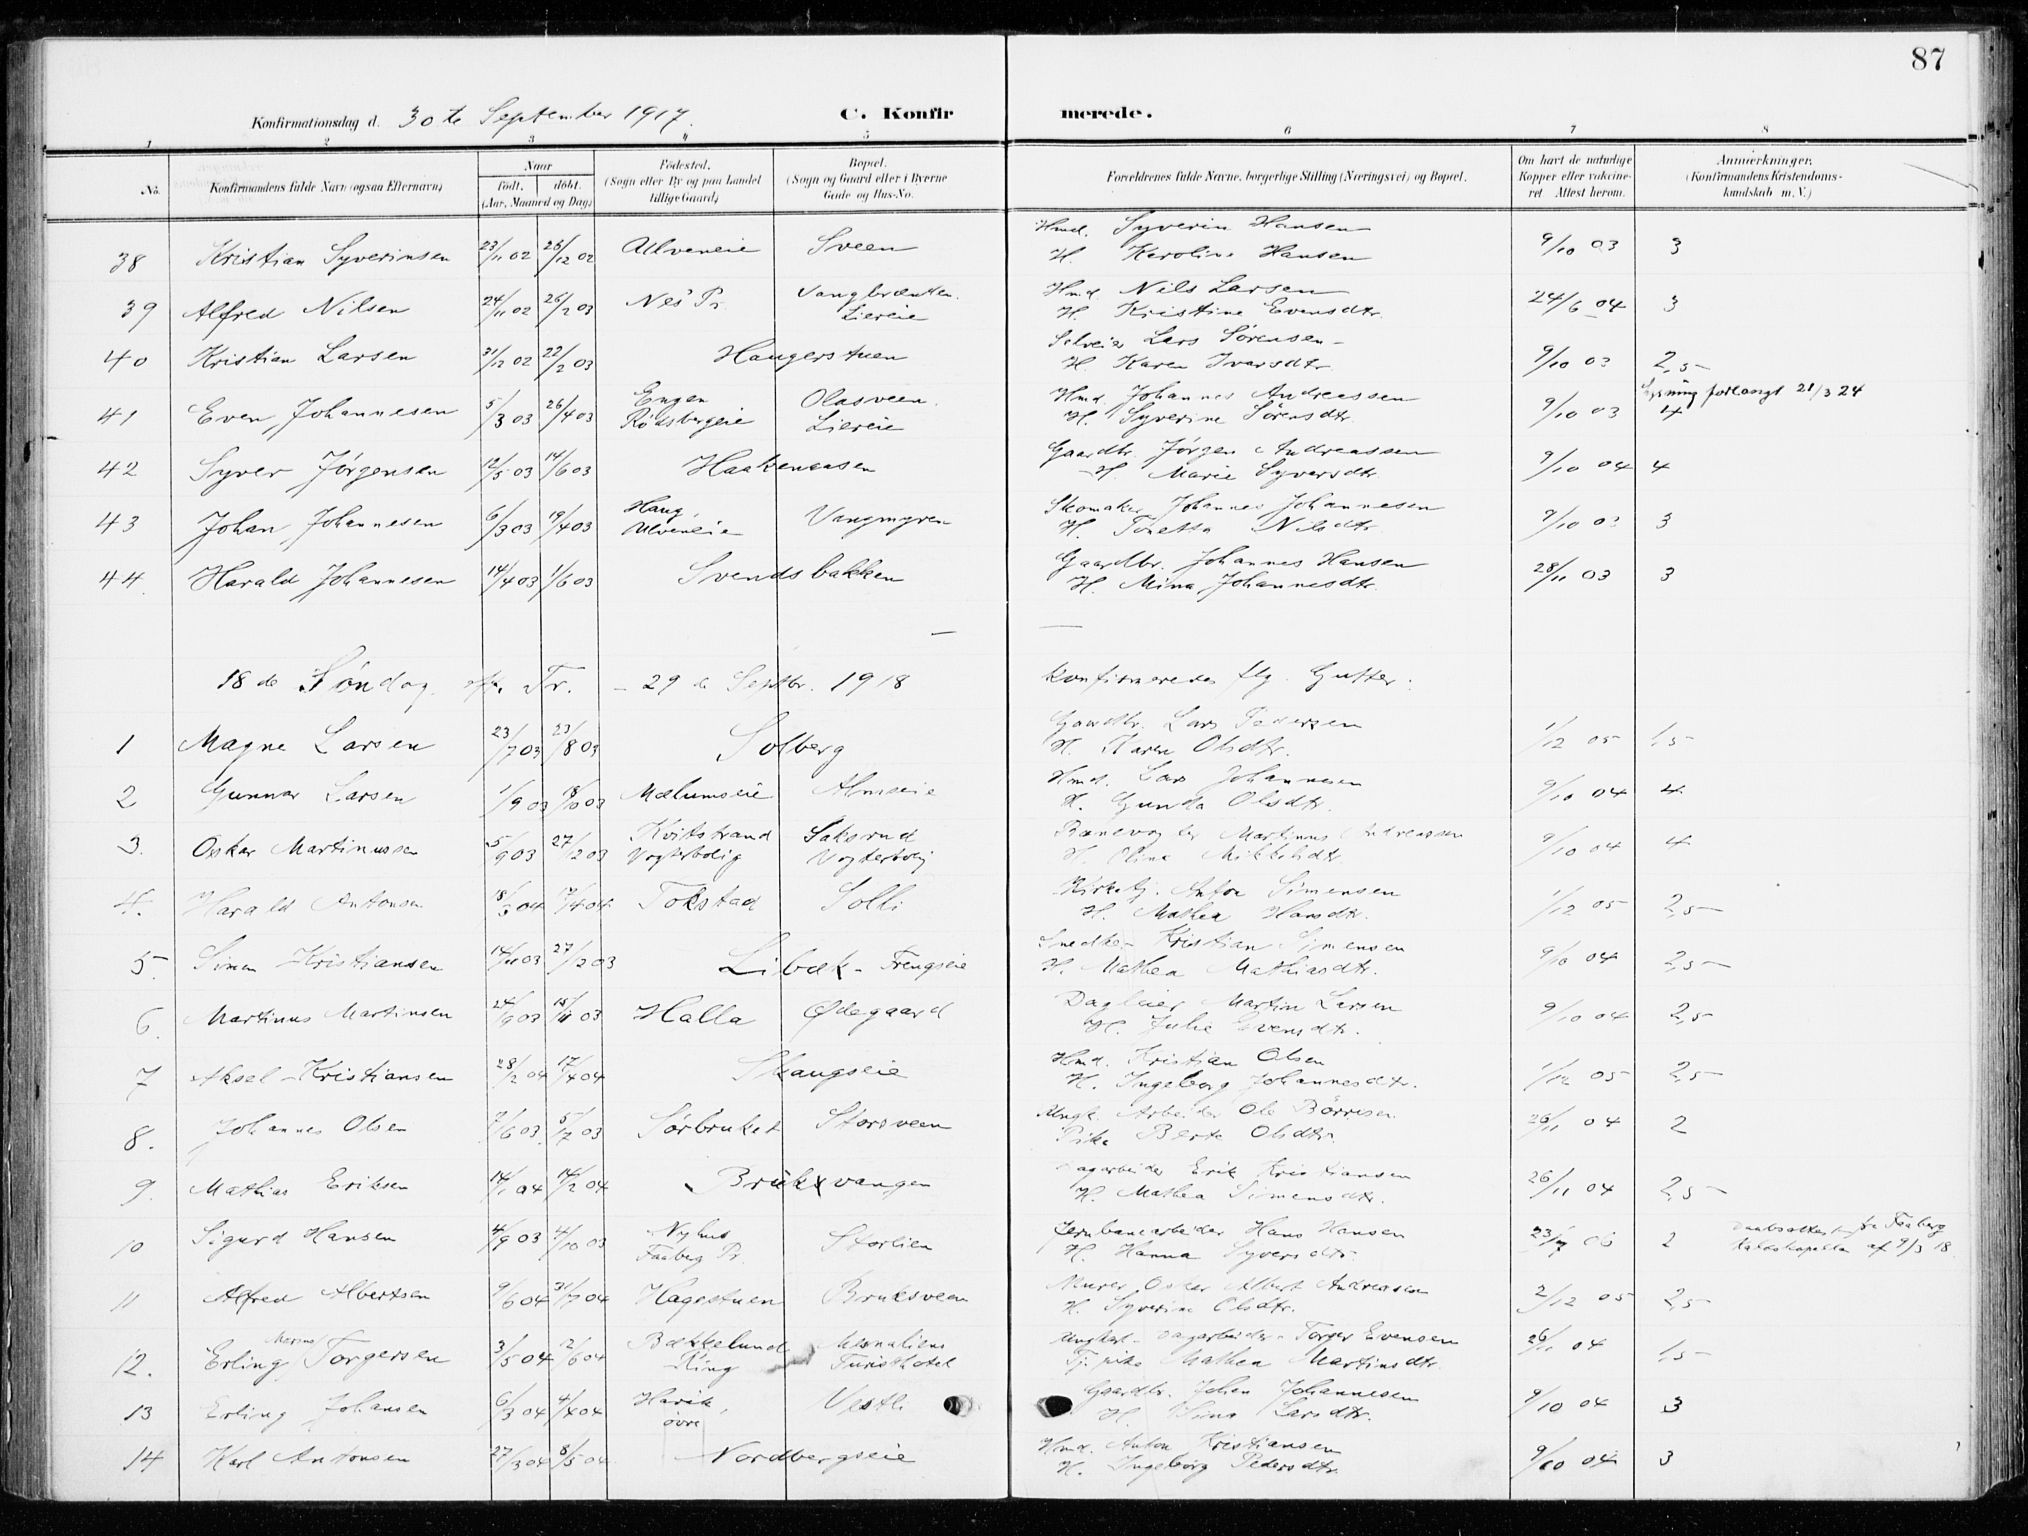 87
Konfirmationsdag d. 30te September 1917. C. Konfirmerede.
1 2 3 4 5 6 7 8
No. Konfirmandens fulde Navn (ogsaa Efternavn) Naar født. døbt. (Aar, Maaned og Dag) Fødested. (Sogn eller By og paa Landet tillige Gaard) Bopæl. (Sogn og Gaard eller i Byerne Gade og Hus-No. Forældrenes fulde Navne, borgerlige Stilling (Næringsvei) og Bopæl. Om havt de naturlige Kopper eller vakcineret. Attest herom. Anmærkninger. (Konfirmandens Kristendomskundskab m. V.)
38 Kristian Syverinsen 23/11 02 26/12 02 Ulveneie Sveen Hmd. Syverin Hansen
H. Karoline Hansen 9/10 03 3
39 Alfred Nilsen 24/11 02 26/2 03 Nes Pr. Vangbrænten. Liereie Hmd. Nils Larsen
H. Kristine Evensdtr. 24/6 04 3
40 Kristian Larsen 31/12 02 22/2 03 Haugerstuen Selveier Lars Sørensen
H. Karen Ivarsdtr. 9/10 03 2,5
41 Even Johannesen 5/3 03 26/4 03 Engen Rødsbergeie Olasveen. Liereie Hmd. Johannes Andreassen
H. Syverine Sørensdtr. 9/10 03 4 Lysning forlangt 21/3 24
42 Syver Jørgensen 12/5 03 14/6 03 Haakenaasen Gaardbr. Jørgen Andreassen
H. Marie Syversdtr. 9/10 04 4
43 Johan Johannesen 6/3 03 19/4 03 Haug, Ulveneie Vangmyren Skomaker Johannes Johannesen
H. Toretta Nilsdtr. 9/10 03 3
44. Harald Johannesen 14/4 03 1/6 03 Svendsbakken Gaardbr. Johannes Hansen
H. Mina Johannesdtr. 28/11 03 3
18de Søndag eft. Tr. - 29de Septbr. 1918 konfirmeredes flg. Gutter:
1 Magne Larsen 23/7 03 23/8 03 Solberg Gaardbr. Lars Pedersen
H. Karen Olsdtr. 1/12 05 1,5
2 Gunnar Larsen 1/9 03 18/10 03 Mælumseie Almseie Hmd. Lars Johannesen
H. Gunda Olsdtr. 9/10 04 4
3. Oskar Martinussen 5/9 03 27/12 03 Kvitstrand Vogterbolig Saksrud Vogterbolig Banevogter Martinus Andreassen
H. Oline Mikkelsdtr. 9/10 04 4
4. Harald Antonsen 18/3 04 17/4 04 Tokstad Solli Kirketj. Anton Simensen
H. Mathea Hansdtr. 1/12 05 2,5
5. Simen Kristiansen 14/11 03 27/12 03 Libæk - Frengseie Snedker Kristian Simensen
H. Mathea Mathiasdtr. 9/10 04 2,5
6. Martinus Martinsen 24/9 03 15/11 03 Halla Ødegaard Dagleier Martin Larsen
H. Julie Evensdtr. 9/10 04 2,5
7 Aksel Kristiansen 28/2 04 17/4 04 Skaugseie Hmd. Kristian Olsen
H. Ingeborg Johannesdtr. 1/12 05 2,5
8. Johannes Olsen 7/6 03 5/7 03 Sørbruket Storsveen Ungk. Arbeider Ole Børresen
Pike Berte Olsdtr. 26/11 04 2
9. Mathias Eriksen 14/1 04 14/2 04 Bruksvangen Dagarbeider Erik Kristiansen
H. Mathea Simensdtr. 26/11 04 2,5
10 Sigurd Hansen 4/9 03 4/10 03 Nyhus Faaberg Pr. Storlien Jernbanearbeider Hans Hansen
H. Hanna Syversdtr. 23/7 06 2 Daabsattest fra Faaberg af 9/3 18
11 Alfred Albertsen 9/6 04 31/7 04 Hagestuen Bruksveen Murer Oskar Albert Andreassen
H. Syverine Olsdtr. 2/12 05 2,5
12. Erling Marino Torgersen 3/5 04 12/6 04 Bækkelund Ring Mesnaliens Turisthotel Ungkarl - Dagarbeider - Torger Evensen
Tj. pike Mathea Martinsdtr. 26/11 04 1,5
13 Erling Johansen 6/3 04 4/4 04 Havik, øvre Vestli Gaardbr. Johan Johannesen
H. Sina Larsdtr. 9/10 04 3
14 Karl Antonsen 27/3 04 8/5 04 Nordbergseie Hmd. Anton Kristiansen
H. Ingeborg Pedersdtr. 9/10 04 3